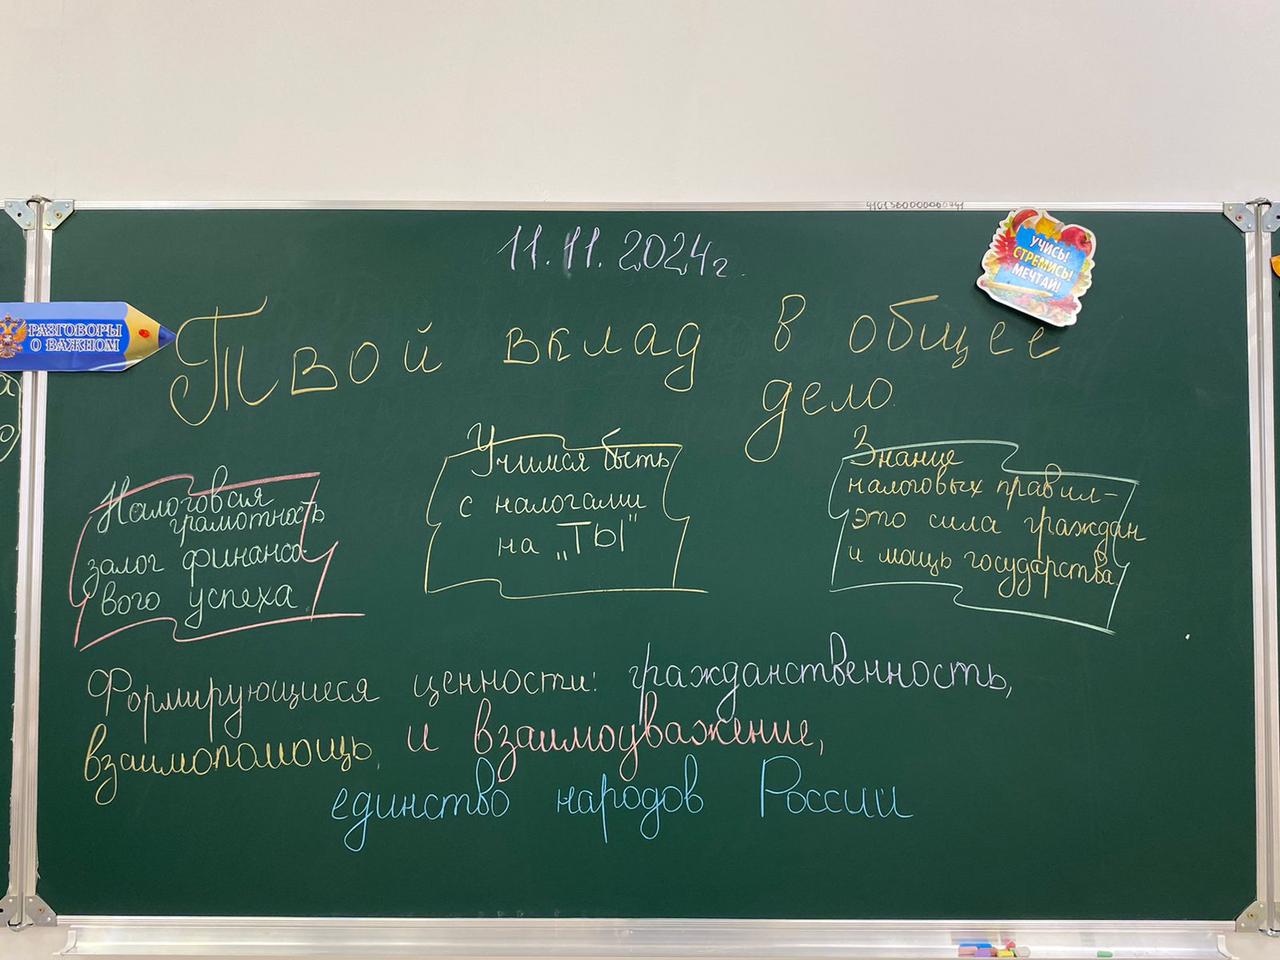 4101360000060741
11.11.2024г.
УЧИСЬ!
СТРЕМИСЬ!
МЕЧТАЙ!
РАЗГОВОРЫ
О ВАЖНОМ
Твой вклад в общее
дело.
Налоговая
грамотность
залог финансо-
вого успеха.
Учимся быть
с налогами
на „ТЫ"
Знание
налоговых правил-
это сила граждан
и мощь государства
Формирующиеся ценности: гражданственность,
взаимопомощь, и взаимоуважение,
единство народов России